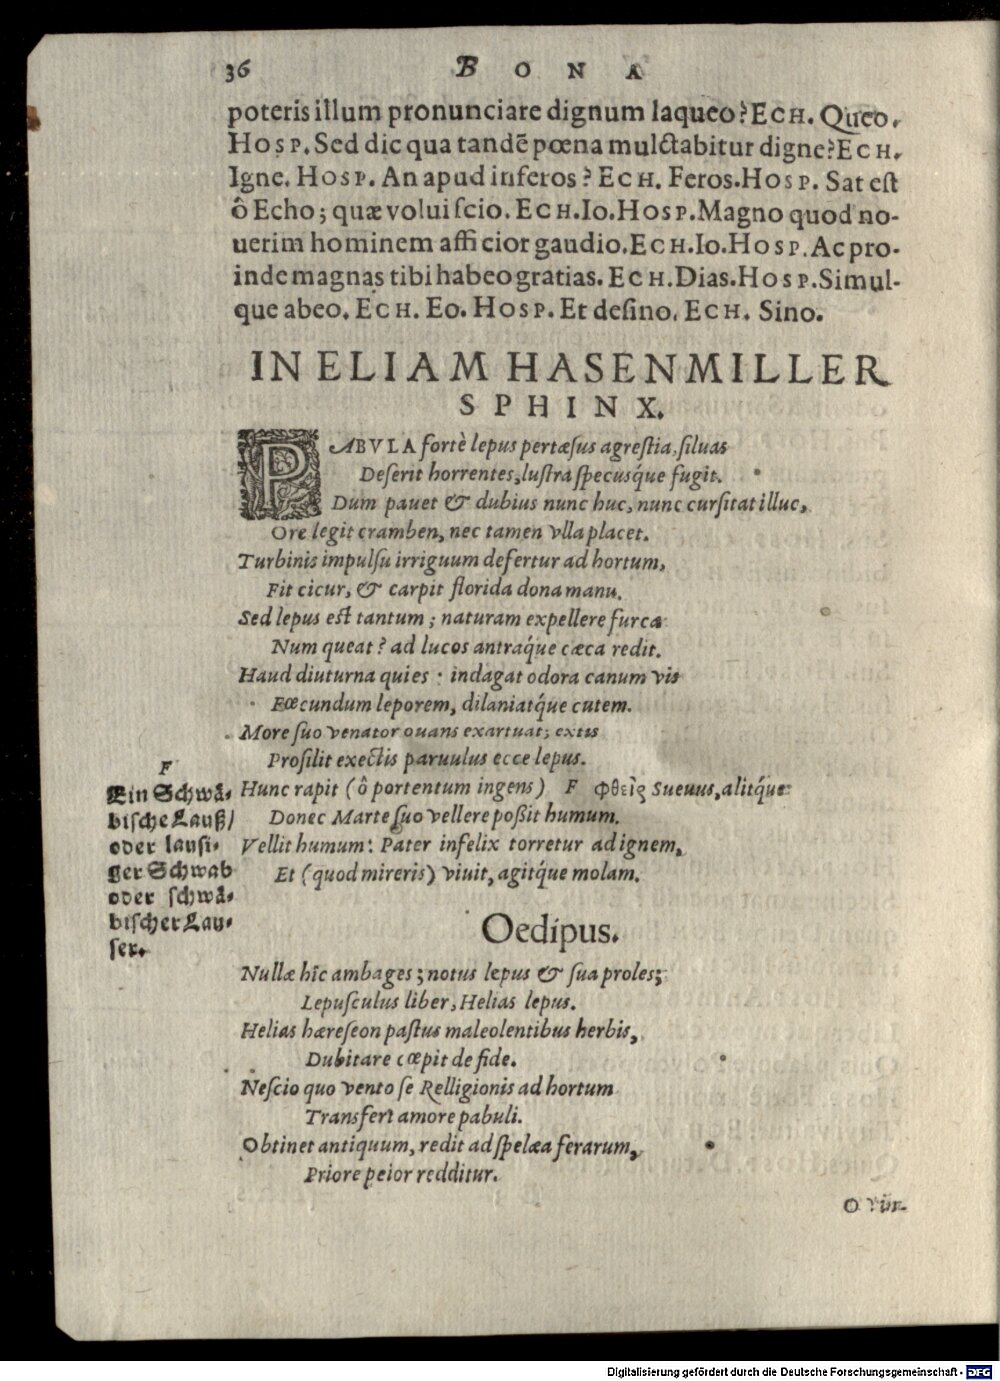 36 BONA
poteris illum pronunciare dignum laqueo? ECH. Queo.
HOSP. Sed dic qua tandẽ pœna mulctabitur digne? ECH.
Igne. HOSP. An apud inferos? ECH. Feros. HOSP. Sat est
ô Echo; quæ volui scio. ECH. Io. HOSP. Magno quod no-
uerim hominem afficior gaudio. ECH. Io. HOSP. Ac pro-
inde magnas tibi habeo gratias. ECH. Dias. HOSP. Simul-
que abeo. ECH. Eo. HOSP. Et desino. ECH. Sino.
IN ELIAM HASENMILLER
SPHINX.
PABVLA fortè lepus pertæsus agrestia, siluas
Deserit horrentes, lustra specusq́ue fugit.
Dum pauet & dubius nunc huc, nunc cursitat illuc,
Ore legit cramben, nec tamen vlla placet.
Turbinis impulsu irriguum defertur ad hortum,
Fit cicur, & carpit florida dona manu.
Sed lepus est tantum; naturam expellere furca
Num queat? ad lucos antraq́ue cæca redit.
Haud diuturna quies: indagat odora canum vis
Fœcundum leporem, dilaniatq́ue cutem.
More suo venator ouans exartuat; extis
Prosilit exectis paruulus ecce lepus.
Hunc rapit (ô portentum ingens) F φθεὶς Sueuus, alitq́ue
Donec Marte suo vellere poßit humum.
Vellit humum: Pater infelix torretur ad ignem,
Et (quod mireris) viuit, agitq́ue molam.
F
Ein Schwä-
bische Lauß/
oder lausi-
ger Schwab
oder schwä-
bischer Lau-
ser.
Oedipus.
Nullæ hîc ambages; notus lepus & sua proles;
Lepusculus liber, Helias lepus.
Helias hæreseon pastus maleolentibus herbis,
Dubitare cœpit de fide.
Nescio quo vento se Relligionis ad hortum
Transfert amore pabuli.
Obtinet antiquum, redit ad spelæa ferarum,
Priore peior redditur.
Digitalisierung gefördert durch die Deutsche Forschungsgemeinschaft - DFG